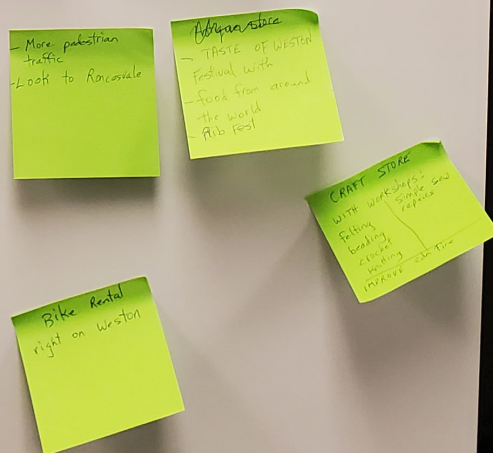 - More padestrian
traffic
- Look to Roncesvale
- TASTE OF WESTON
Festival with
- food from around
the world
- Rib Fest
CRAFT STORE
WITH WORKSHOPS:
felting
beading
crochet
knitting
simple sew
repairs
IMPROVE
Bike Rental
right on Weston